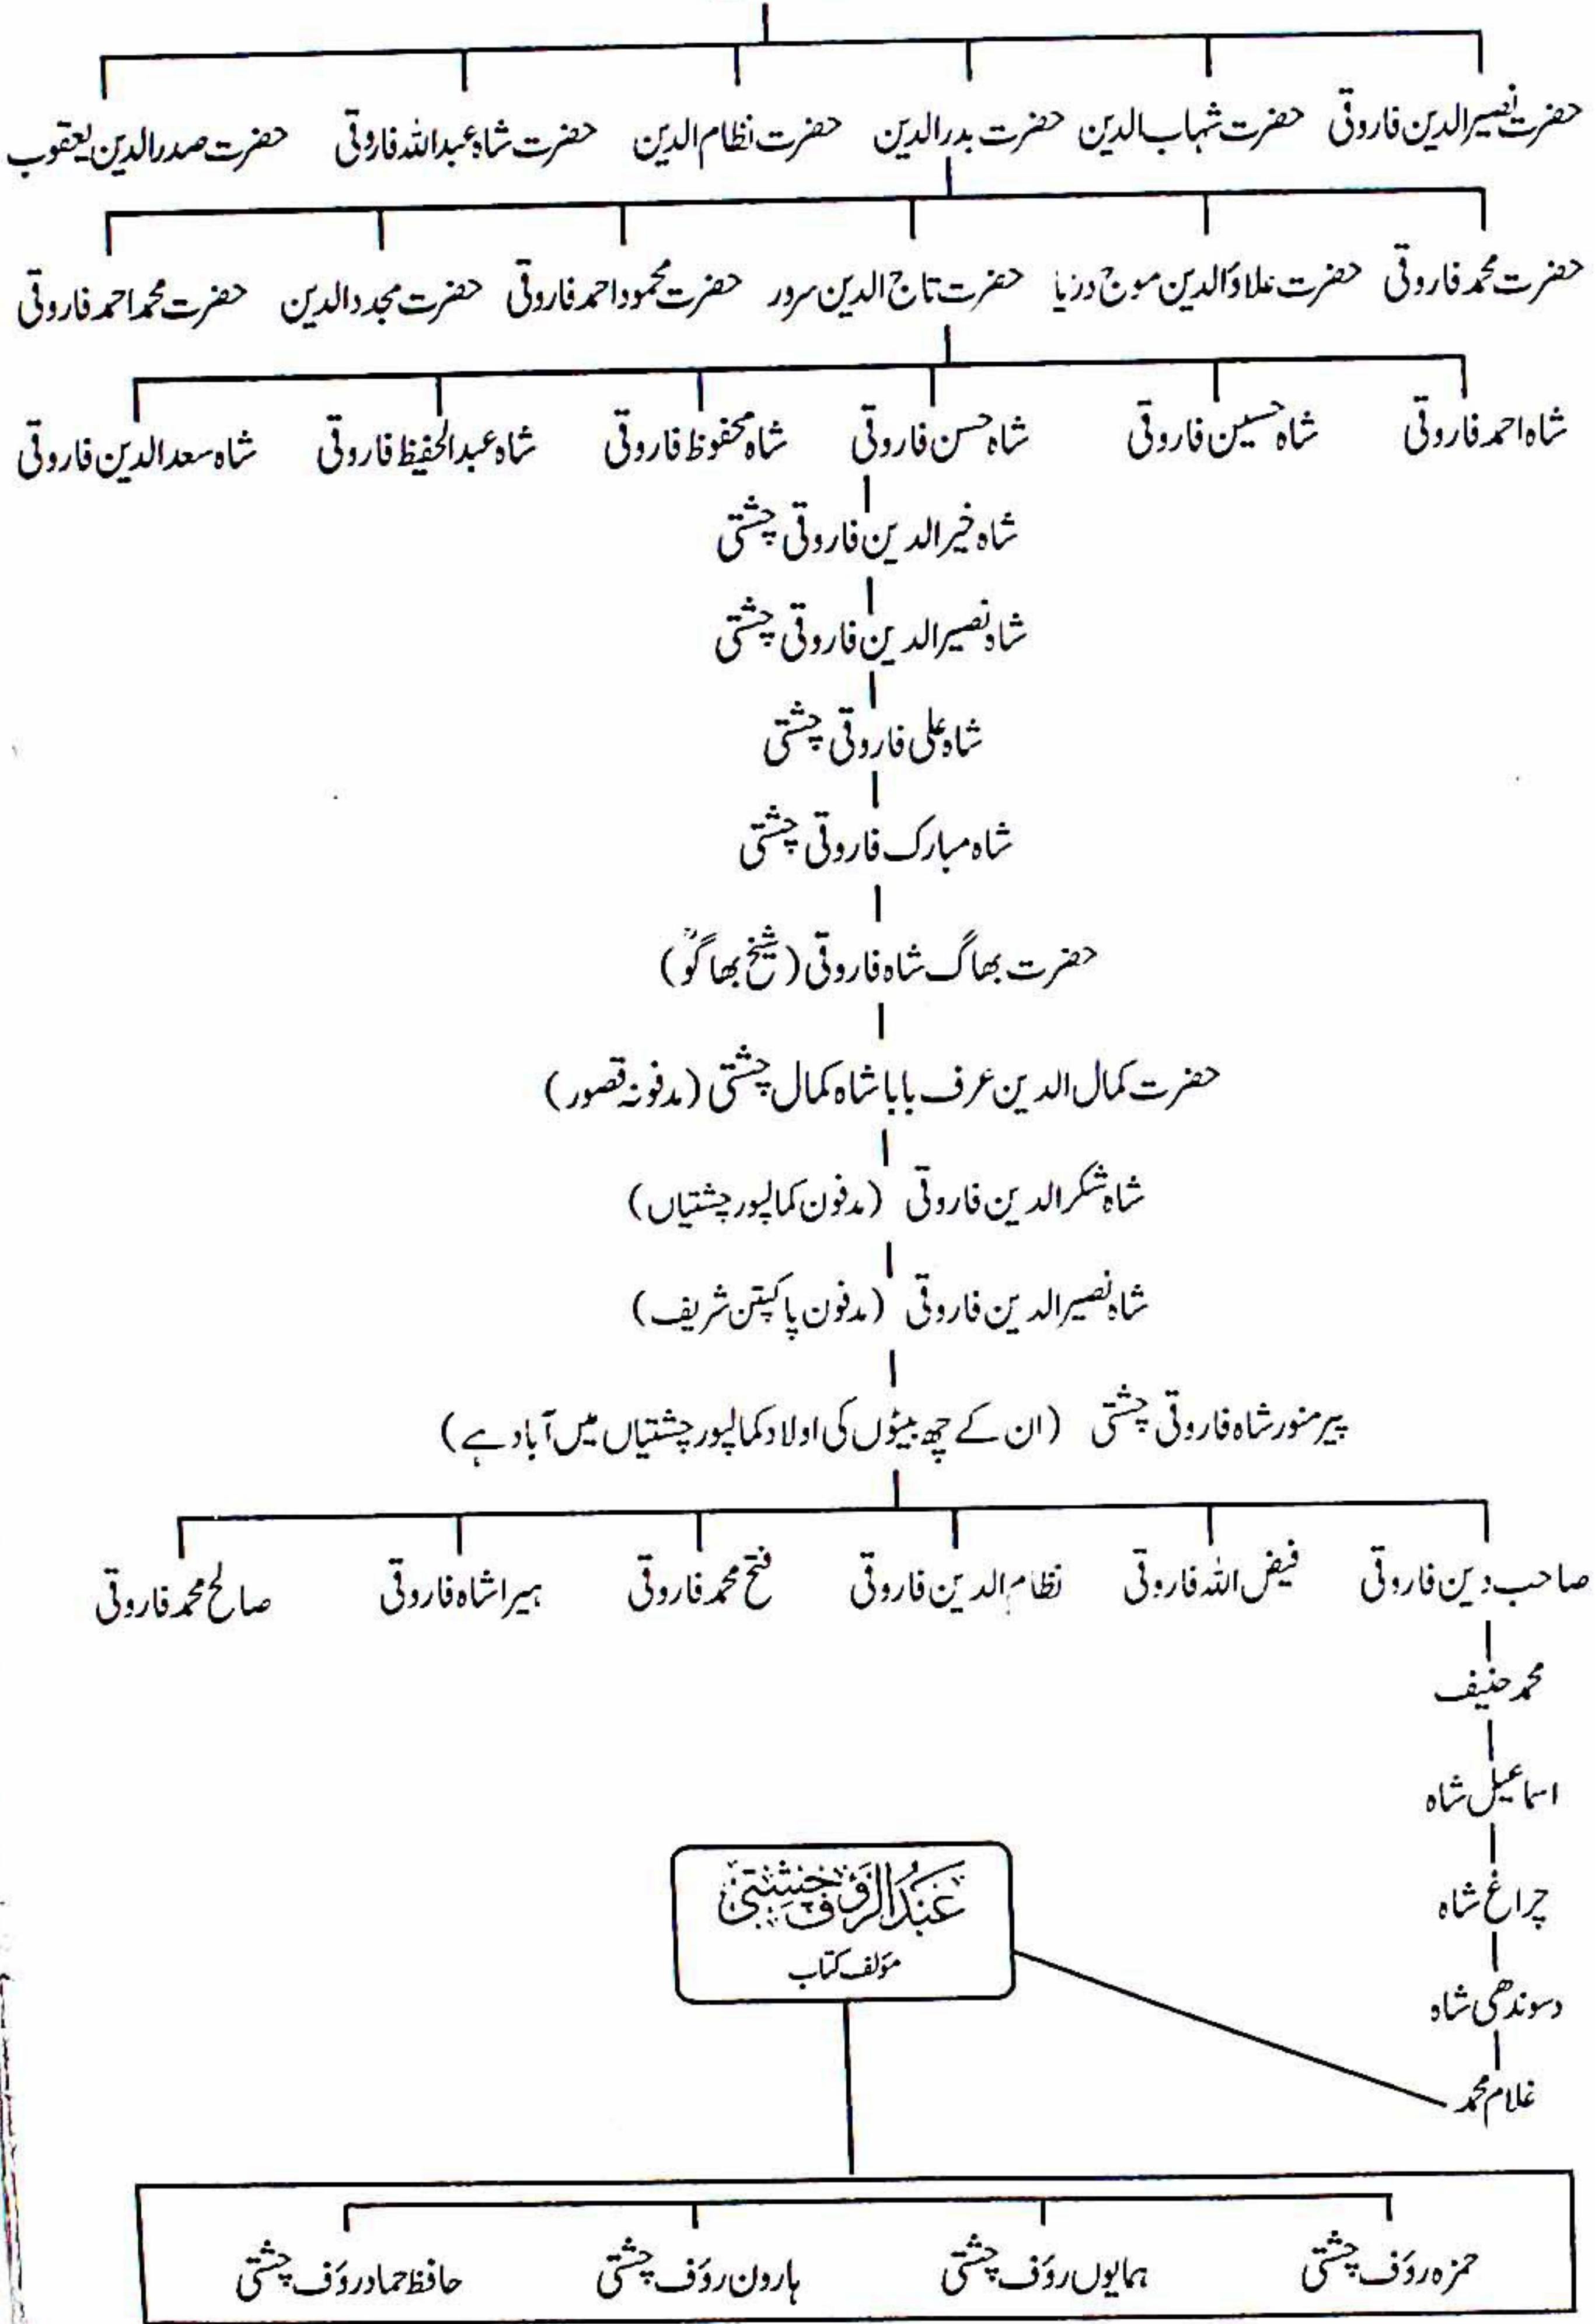 حضرت نصیرالدین فاروقی حضرت شہاب الدین حضرت بدرالدین حضرت نظام الدین حضرت شاہ عبداللہ فاروقی حضرت صدرالدین یعقوب
حضرت محمد فاروقی حضرت علاؤالدین موج دریا حضرت تاج الدین سرور حضرت محمود احمد فاروقی حضرت مجدد الدین حضرت محمد احمد فاروقی
شاہ احمد فاروقی شاہ حسین فاروقی شاہ حسن فاروقی شاہ محفوظ فاروقی شاہ عبدالحفیظ فاروقی شاہ سعد الدین فاروقی
شاہ خیرالدین فاروقی چشتی
شاہ نصیرالدین فاروقی چشتی
شاہ علی فاروقی چشتی
شاہ مبارک فاروقی چشتی
حضرت بھاگ شاہ فاروقی (شیخ بھاگوؒ)
حضرت کمال الدین عرف بابا شاہ کمال چشتی (مدفونہ قصور)
شاہ شکر الدین فاروقی (مدفون کمالپور چشتیاں)
شاہ نصیر الدین فاروقی (مدفون پاکپتن شریف)
پیر منور شاہ فاروقی چشتی (ان کے چھ بیٹوں کی اولاد کمالپور چشتیاں میں آباد ہے)
صاحب دین فاروقی فیض اللہ فاروقی نظام الدین فاروقی فتح محمد فاروقی ہیرا شاہ فاروقی صالح محمد فاروقی
محمد حنیف
اسماعیل شاہ
چراغ شاہ
دسوندھی شاہ
غلام محمد
عَبْدُالرَّؤف چِشتی
مؤلف کتاب
حمزہ رؤف چشتی ہمایوں رؤف چشتی ہارون رؤف چشتی حافظ حماد رؤف چشتی